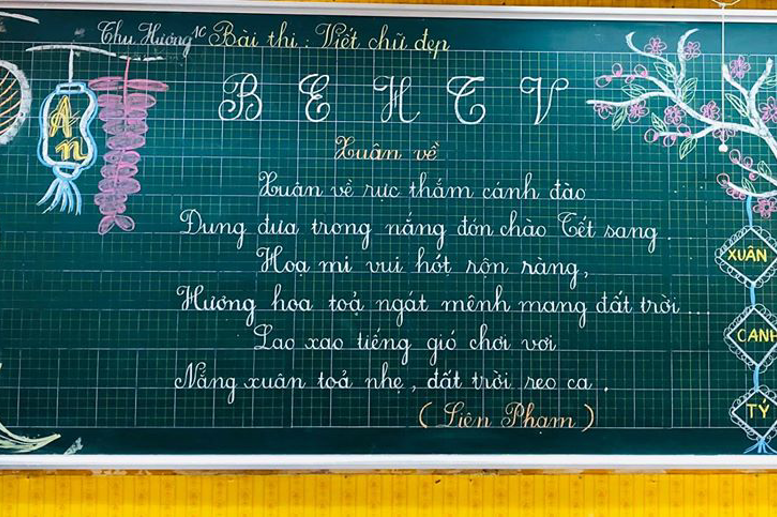 Thu Hương 1C Bài thi : Viết chữ đẹp
B E H T V
Xuân về
Xuân về rực thắm cánh đào
Dung đưa trong nắng đón chào Tết sang.
Hoạ mi vui hót rộn ràng,
Hương hoa toả ngát mênh mang đất trời ...
Lao xao tiếng gió chơi vơi
Nắng xuân toả nhẹ, đất trời reo ca.
( Liên Phạm )
An
XUÂN
CANH
TÝ